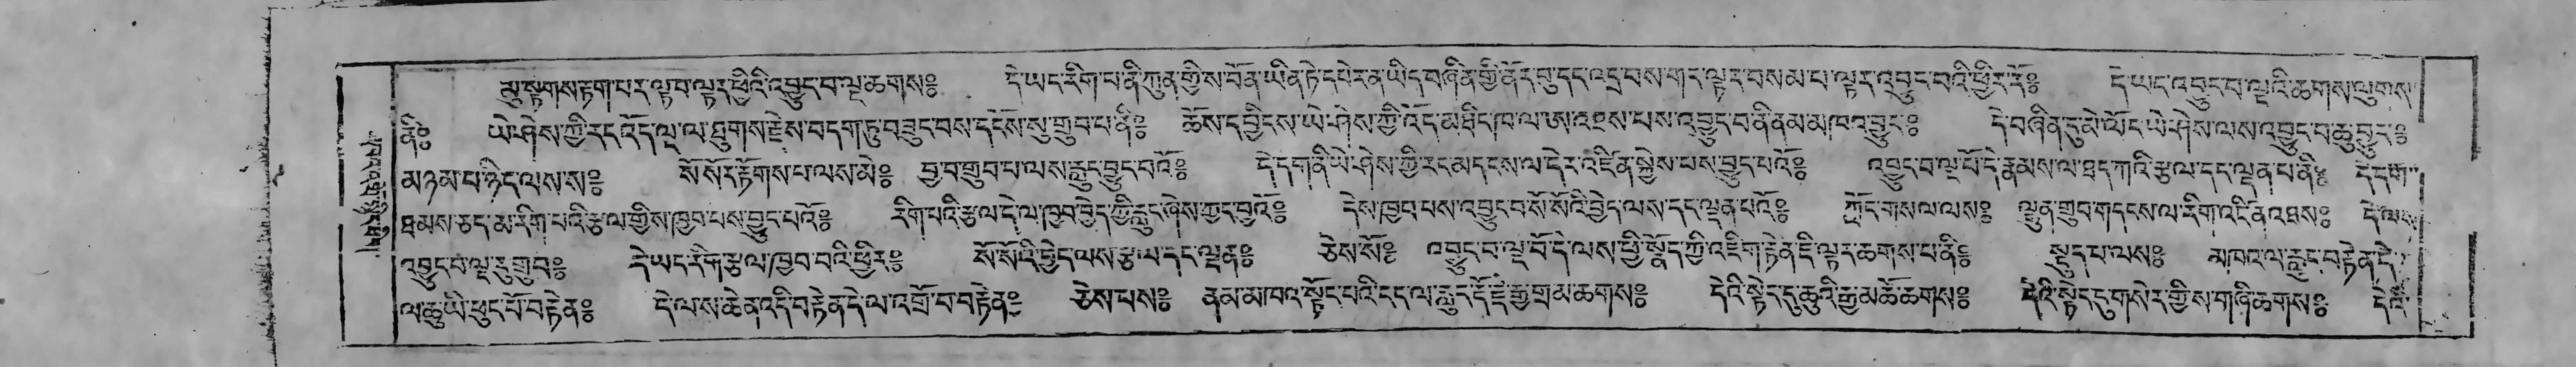 མུ་སྟགས་རྟག་པར་ལྟ་བ་ལྟར་ཕྱིའི་འབྱུང་བ་ལྔ་ཆགས༔ དེ་ཡང་རིག་པ་ནི་ཀུན་གྱིས་བོན་ཡིན་ཏེ་དཔེར་ན་ཡིད་བཞིན་གྱི་ནོར་བུ་དང་འདྲ་བས་གར་ལྟར་བསམ་པ་ལྟར་འབྱུང་བའི་ཕྱིར་རོ༔ དེ་ཡང་འབྱུང་བ་ལྔའི་ཆགས་ལུགས
ནི༔ ཡེ་ཤེས་ཀྱི་རང་འོད་ལྔ་ལ་ཐུགས་རྗེས་བདག་ཏུ་བཟུང་བས་དངོས་སུ་གྲུབ་པ་ནི༔ ཆོས་དབྱིངས་ཡེ་ཤེས་ཀྱི་འོད་མཐིང་ཁ་ལ་ཨ་འཐས་པས་འབྱུང་བ་ནི་ནམ་མཁའ་བྱུང༔ དེ་བཞིན་དུ་མེ་ལོང་ཡེ་ཤེས་ལས་འབྱུང་བ་ཆུ་བྱུང༔
མཉམ་པ་ཉིད་ལས་ས༔ སོ་སོར་རྟོགས་པ་ལས་མེ༔ བྱ་བ་གྲུབ་པ་ལས་རླུང་བྱུང་བའོ༔ དེ་དག་ནི་ཡེ་ཤེས་ཀྱི་རང་མདངས་ལ་དེར་འཛིན་སྐྱེས་པས་བྱུང་པའོ༔ འབྱུང་བ་ལྔ་པོ་དེ་རྣམས་ལ་ཐད་ཀའི་རྩལ་དང་ལྡན་པ་ནི༔ དེ་དག
ཐམས་ཅད་མ་རིག་པའི་རྩལ་གྱིས་ཁྱབ་པས་བྱུང་པའོ༔ རིག་པའི་རྩལ་དེ་ལ་ཁྱབ་བྱེད་ཀྱི་རླུང་ཞེས་ཀྱང་བྱའོ༔ དེས་ཁྱབ་པས་འབྱུང་བ་སོ་སོའི་བྱེད་ལས་དང་ལྡན་པའོ༔ ཀློང་གསལ་ལས༔ ལྷུན་གྲུབ་གདངས་ལ་རིག་འཛིན་འཐས༔ དེ་ལས
འབྱུང་བ་ལྔ་རུ་གྲུབ༔ དེ་ཡང་རིག་རྩལ་ཁྱབ་བའི་ཕྱིར༔ སོ་སོའི་བྱེད་ལས་རྩལ་དང་ལྡན༔ ཅེས་སོ༔ འབྱུང་བ་ལྔ་པོ་དེ་ལས་ཕྱི་སྣོད་ཀྱི་འཇིག་རྟེན་ཇི་ལྟར་ཆགས་པ་ནི༔ སྡུད་པ་ལས༔ མཁའ་ལ་རླུང་བརྟེན་དེ
ལ་ཆུ་ཡི་ཕུང་པོ་བརྟེན༔ དེ་ལས་ཆེན་འདི་བརྟེན་དེ་ལ་འགྲོ་བ་བརྟེན༔ ཅེས་པས༔ ནམ་མཁའ་སྟོང་པའི་ངང་ལ་རླུང་དོ་རྗེ་རྒྱ་གྲམ་ཆགས༔ དེའི་སྟེང་དུ་ཆུའི་རྒྱ་མཚོ་ཆགས༔ དེའི་སྟེང་དུ་གསེར་གྱིས་གཞི་ཆགས༔ དེའི